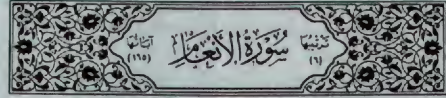 ترتيبها (٦) سورة الأنعام آياتها (١٦٥)